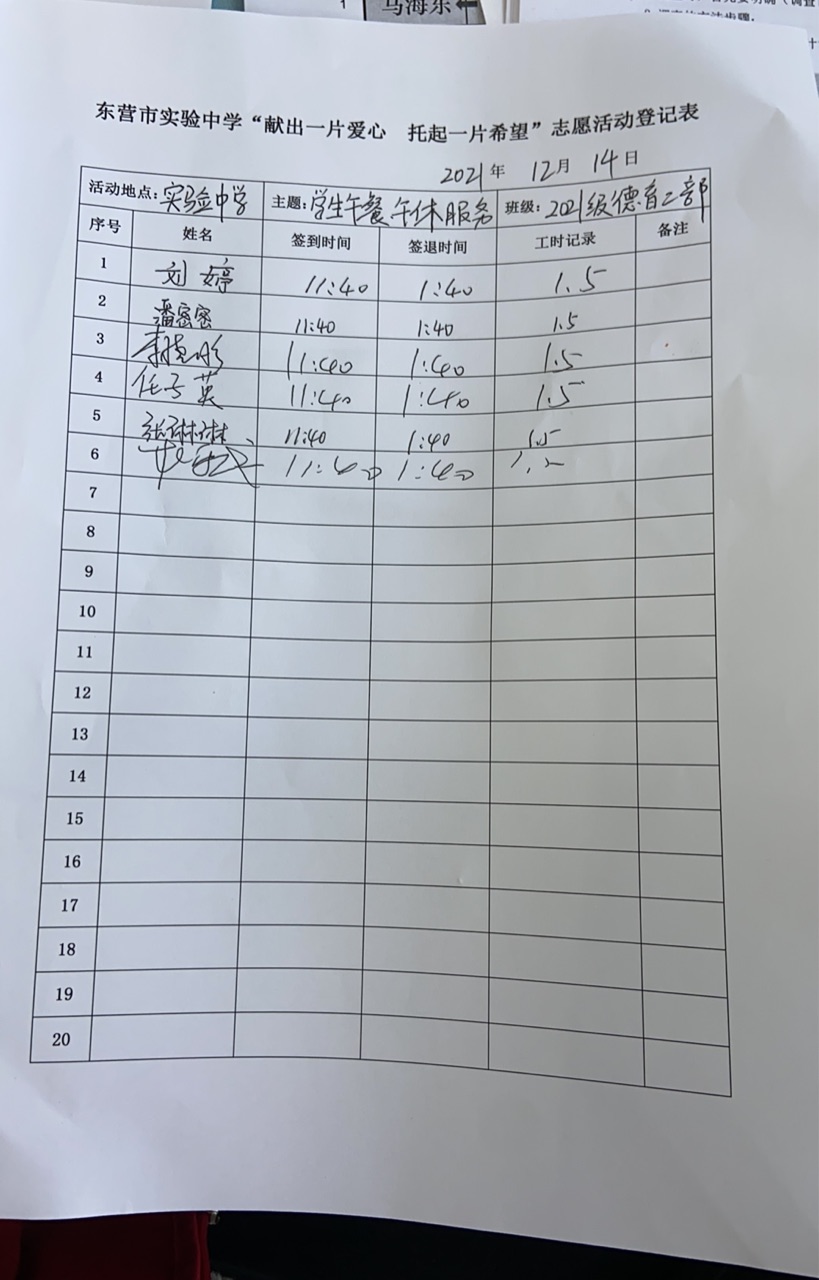 马海东
东营市实验中学“献出一片爱心 托起一片希望”志愿活动登记表
2021年 12月 14日
活动地点:实验中学 主题:学生午餐午休服务 班级:2021级德育二部
序号 姓名 签到时间 签退时间 工时记录 备注
1 刘婷 11:40 1:40 1.5
2 潘密密 11:40 1:40 1.5
3 11:40 1:40 1.5
4 任子英 11:40 1:40 1.5
5 张琳琳 11:40 1:40 1.5
6 11:40 1:40 1.5
7
8
9
10
11
12
13
14
15
16
17
18
19
20